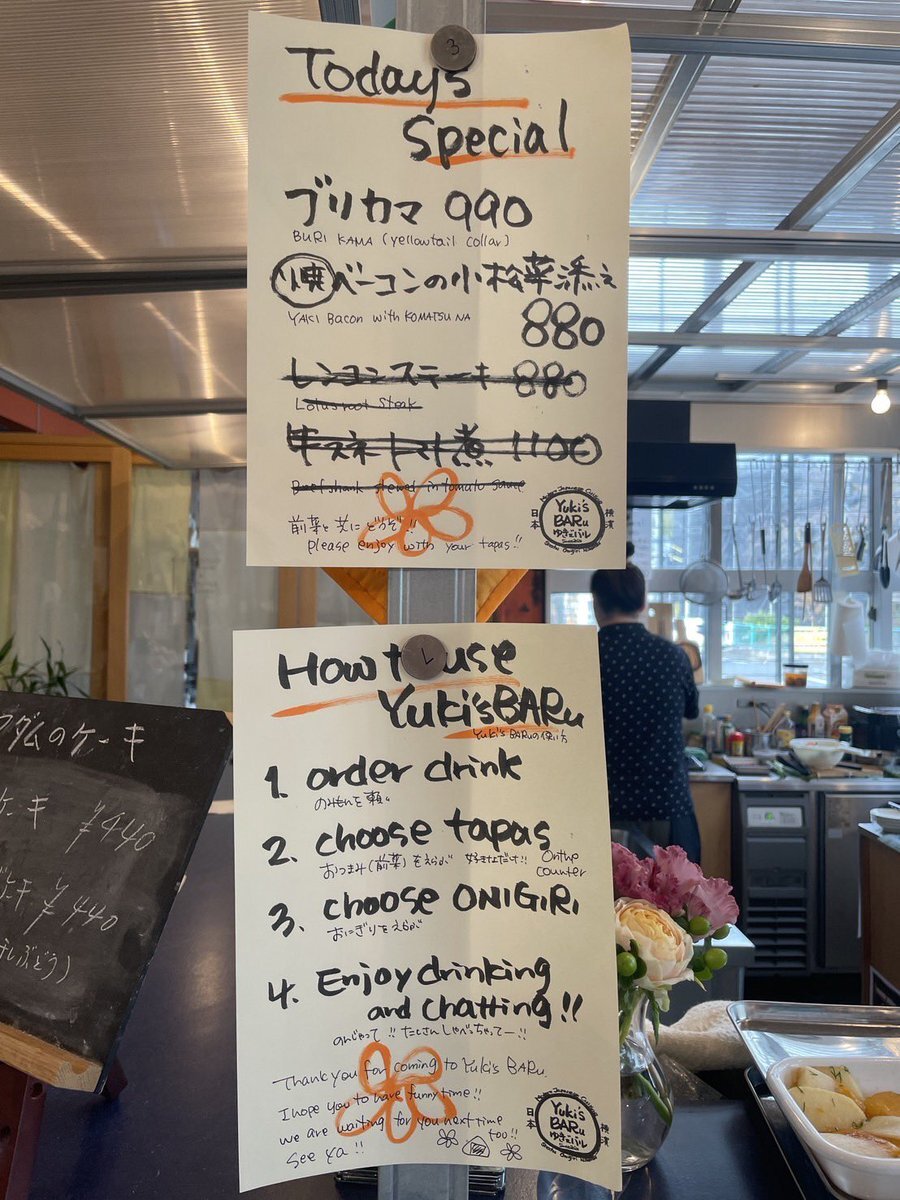 Todays
Special
ブリカマ 990
BURI KAMA (yellowtail collar)
焼ベーコンの小松菜添え
YAKI Bacon with KOMATSUNA
880
レンコンステーキ 880
Lotus root steak
牛スネトマト煮 1100
Beef shank stewed in tomato sauce
前菜と共にどうぞ!!
please enjoy with your tapas!!
Yuki's
BARu
ゆきこバル
日本
横濱
3
How to use
Yuki's BARu
Yuki's BARuの使い方
1. order drink
のみものを頼む
2. choose tapas
おつまみ(前菜)をえらぶ 好きなだけ!! On the
counter
3. choose ONIGIRI
おにぎりをえらぶ
4. Enjoy drinking
and chatting!!
のんじゃって!! たくさんしゃべっちゃってー!!
Thank you for coming to Yuki's BARu.
I hope you to have funny time!!
we are waiting for you next time
too!!
see ya!!
Yuki's
BARu
ゆきこバル
日本
横濱
1
ダムのケーキ
ケーキ ¥440
ケーキ ¥440
ぶどう)